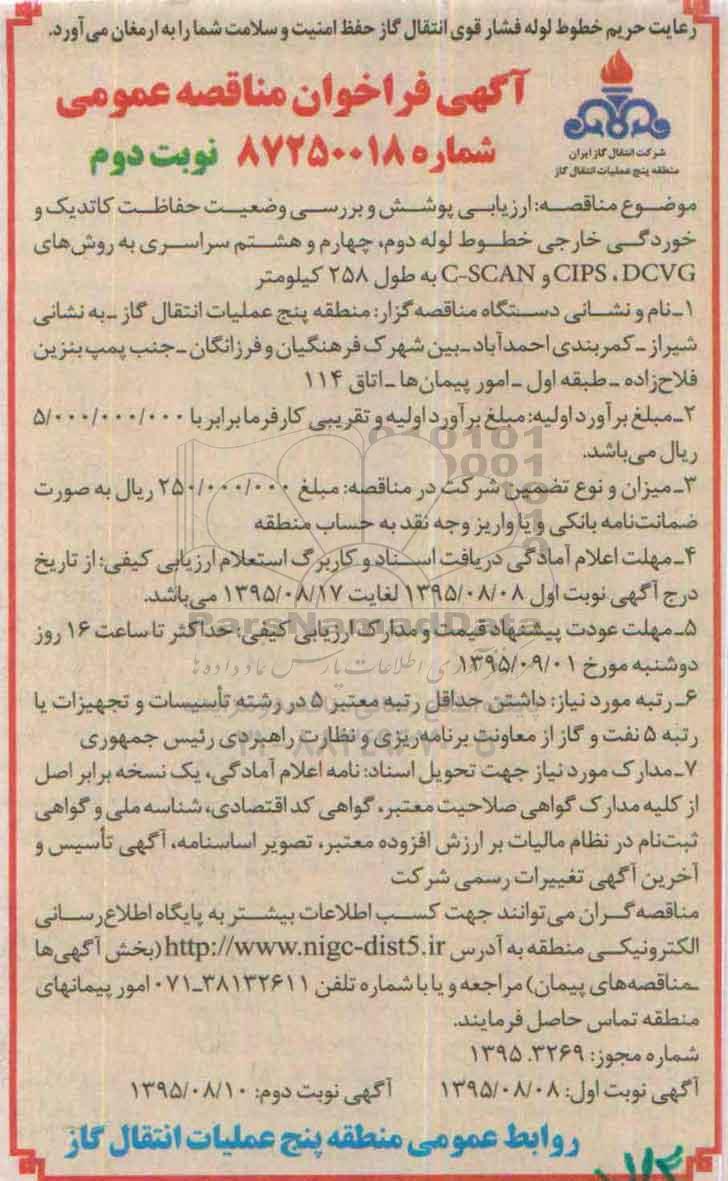 رعایت حریم خطوط لوله فشار قوی انتقال گاز حفظ امنیت و سلامت شما را به ارمغان می‌آورد.
آگهی فراخوان مناقصه عمومی
شماره ۸۷۲۵۰۰۱۸ نوبت دوم
شرکت انتقال گاز ایران
منطقه پنج عملیات انتقال گاز
موضوع مناقصه: ارزیابی پوشش و بررسی وضعیت حفاظت کاتدیک و
خوردگی خارجی خطوط لوله دوم، چهارم و هشتم سراسری به روش‌های
CIPS ، DCVG و C-SCAN به طول ۲۵۸ کیلومتر
۱ـ نام و نشانی دستگاه مناقصه‌گزار: منطقه پنج عملیات انتقال گاز ـ به نشانی
شیراز ـ کمربندی احمدآباد ـ بین شهرک فرهنگیان و فرزانگان ـ جنب پمپ بنزین
فلاح‌زاده ـ طبقه اول ـ امور پیمان‌ها ـ اتاق ۱۱۴
۲ـ مبلغ برآورد اولیه: مبلغ برآورد اولیه و تقریبی کارفرما برابر با ۵/۰۰۰/۰۰۰/۰۰۰
ریال می‌باشد.
۳ـ میزان و نوع تضمین شرکت در مناقصه: مبلغ ۲۵۰/۰۰۰/۰۰۰ ریال به صورت
ضمانت‌نامه بانکی و یا واریز وجه نقد به حساب منطقه
۴ـ مهلت اعلام آمادگی دریافت اسناد و کاربرگ استعلام ارزیابی کیفی: از تاریخ
درج آگهی نوبت اول ۱۳۹۵/۰۸/۰۸ لغایت ۱۳۹۵/۰۸/۱۷ می‌باشد.
ParsNamadData
۵ـ مهلت عودت پیشنهاد قیمت و مدارک ارزیابی کیفی: حداکثر تا ساعت ۱۶ روز
دوشنبه مورخ ۱۳۹۵/۰۹/۰۱
۶ـ رتبه مورد نیاز: داشتن حداقل رتبه معتبر ۵ در رشته تأسیسات و تجهیزات یا
رتبه ۵ نفت و گاز از معاونت برنامه‌ریزی و نظارت راهبردی رئیس جمهوری
۷ـ مدارک مورد نیاز جهت تحویل اسناد: نامه اعلام آمادگی، یک نسخه برابر اصل
از کلیه مدارک گواهی صلاحیت معتبر، گواهی کد اقتصادی، شناسه ملی و گواهی
ثبت‌نام در نظام مالیات بر ارزش افزوده معتبر، تصویر اساسنامه، آگهی تأسیس و
آخرین آگهی تغییرات رسمی شرکت
مناقصه‌گران می‌توانند جهت کسب اطلاعات بیشتر به پایگاه اطلاع‌رسانی
الکترونیکی منطقه به آدرس http://www.nigc-dist5.ir (بخش آگهی‌ها
ـ مناقصه‌های پیمان) مراجعه و یا با شماره تلفن ۳۸۱۳۲۶۱۱ـ۰۷۱ امور پیمانهای
منطقه تماس حاصل فرمایند.
شماره مجوز: ۱۳۹۵.۳۲۶۹
آگهی نوبت اول: ۱۳۹۵/۰۸/۰۸ آگهی نوبت دوم: ۱۳۹۵/۰۸/۱۰
روابط عمومی منطقه پنج عملیات انتقال گاز